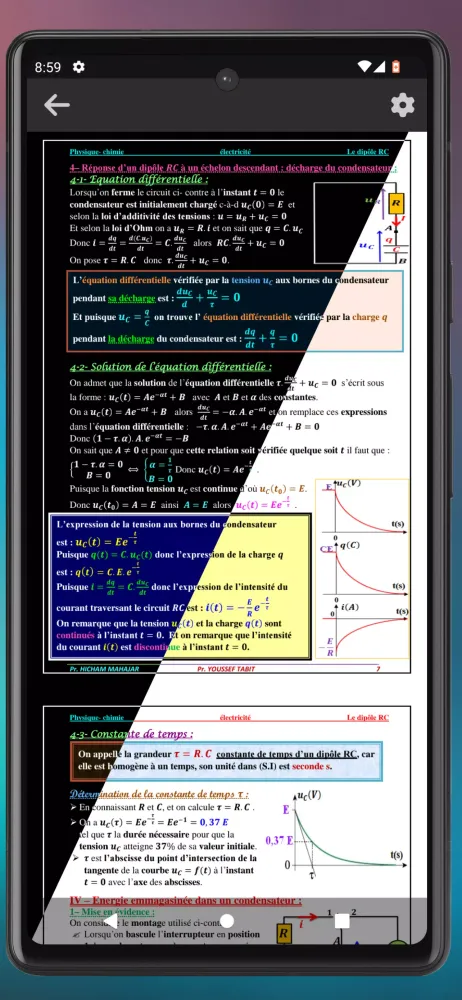 8:59
Physique- chimie électricité Le dipôle RC
4– Réponse d'un dipôle RC à un échelon descendant : décharge du condensateur :
4-1- Equation différentielle :
Lorsqu'on ferme le circuit ci- contre à l'instant t = 0 le
condensateur est initialement chargé c-à-d u_C(0) = E et
selon la loi d'additivité des tensions : u = u_R + u_C = 0
Et selon la loi d'Ohm on a u_R = R. i et on sait que q = C. u_C
Donc i = dq/dt = d(C.u_C)/dt = C. du_C/dt alors RC. du_C/dt + u_C = 0
On pose τ = R. C donc τ. du_C/dt + u_C = 0.
u_R R
i
A
u_C q C
B
L'équation différentielle vérifiée par la tension u_C aux bornes du condensateur
pendant sa décharge est : du_C/d + u_C/τ = 0
Et puisque u_C = q/C on trouve l' équation différentielle vérifiée par la charge q
pendant la décharge du condensateur est : dq/dt + q/τ = 0
4-2- Solution de l'équation différentielle :
On admet que la solution de l'équation différentielle τ. du_C/dt + u_C = 0 s'écrit sous
la forme : u_C(t) = Ae^−αt + B avec A et B et α des constantes.
On a u_C(t) = Ae^−αt + B alors du_C/dt = −α. A. e^−αt et on remplace ces expressions
dans l'équation différentielle : −τ. α. A. e^−αt + Ae^−αt + B = 0
Donc (1 − τ. α). A. e^−αt = −B
On sait que A ≠ 0 et pour que cette relation soit vérifiée quelque soit t il faut que :
{1 − τ. α = 0 B = 0 ⇔ {α = 1/τ B = 0 Donc u_C(t) = Ae^−t/τ .
Puisque la fonction tension u_C est continue d'où u_C(t₀) = E.
Donc u_C(t₀) = A = E ainsi A = E alors u_C(t) = Ee^−t/τ .
L'expression de la tension aux bornes du condensateur
est : u_C(t) = Ee^−t/τ
Puisque q(t) = C. u_C(t) donc l'expression de la charge q
est : q(t) = C. E. e^−t/τ
Puisque i = dq/dt = C. du_C/dt donc l'expression de l'intensité du
courant traversant le circuit RC est : i(t) = − E/R e^−t/τ
On remarque que la tension u_C(t) et la charge q(t) sont
continués à l'instant t = 0. Et on remarque que l'intensité
du courant i(t) est discontinue à l'instant t = 0.
E u_C(V)
t(s)
0
CE q(C)
t(s)
0
i(A)
0 t(s)
−E/R
Pr. HICHAM MAHAJAR Pr. YOUSSEF TABIT 7
Physique- chimie électricité Le dipôle RC
4-3- Constante de temps :
On appelle la grandeur τ = R. C constante de temps d'un dipôle RC, car
elle est homogène à un temps, son unité dans (S.I) est seconde s.
Détermination de la constante de temps τ :
➢ En connaissant R et C, et on calcule τ = R. C .
➢ On a u_C(τ) = Ee^−τ/τ = Ee^−1 = 0,37 E
tel que τ la durée nécessaire pour que la
tension u_C atteigne 37% de sa valeur initiale.
➢ τ est l'abscisse du point d'intersection de la
tangente de la courbe u_C = f(t) à l'instant
t = 0 avec l'axe des abscisses.
u_C(V)
E
0,37 E
0 τ t(s)
IV – Energie emmagasinée dans un condensateur :
1– Mise en évidence :
On considère le montage utilisé ci-cont
Lorsqu'on bascule l'interrupteur en position
1 2
i
R
A